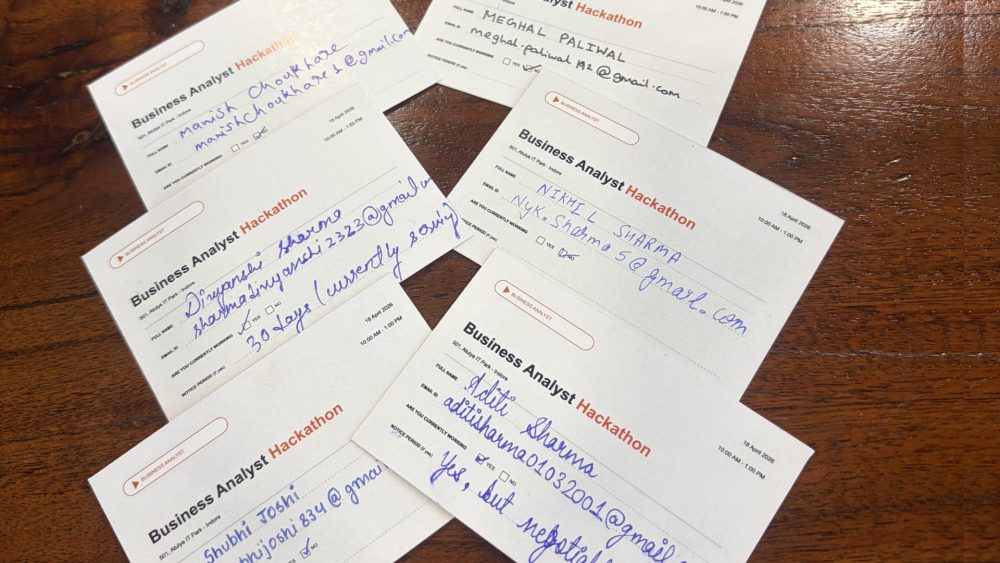 BUSINESS ANALYST
Business Analyst Hackathon
501, Atulya IT Park - Indore
18 April 2026
10:00 AM - 1:00 PM
FULL NAME Manish Choukhare
EMAIL ID manishchoukhare1@gmail.com
ARE YOU CURRENTLY WORKING YES NO
Analyst Hackathon
10:00 AM - 1:00 PM
MEGHAL PALIWAL
meghal.paliwal192@gmail.com
YES NO
NOTICE PERIOD (if yes)
BUSINESS ANALYST
Business Analyst Hackathon
501, Atulya IT Park - Indore
18 April 2026
10:00 AM - 1:00 PM
FULL NAME Divyanshi Sharma
EMAIL ID sharmadivyanshi2323@gmail.com
ARE YOU CURRENTLY WORKING YES NO
NOTICE PERIOD (if yes) 30 days (currently
BUSINESS ANALYST
Business Analyst Hackathon
501, Atulya IT Park - Indore
18 April 2026
10:00 AM - 1:00 PM
FULL NAME NIKHIL SHARMA
EMAIL ID Nyk.sharma5@gmail.com
ARE YOU CURRENTLY WORKING YES
NOTICE PERIOD (if yes)
BUSINESS ANALYST
Business Analyst Hackathon
501, Atulya IT Park - Indore
18 April 2026
10:00 AM - 1:00 PM
Shubhi JOSHI
bhijoshi834@gmai
NO
BUSINESS ANALYST
Business Analyst Hackathon
501, Atulya IT Park - Indore
18 April 2026
10:00 AM - 1:00 PM
FULL NAME Aditi Sharma
EMAIL ID aditisharma01032001@gmail
ARE YOU CURRENTLY WORKING YES NO
NOTICE PERIOD (if yes) Yes, but negotia